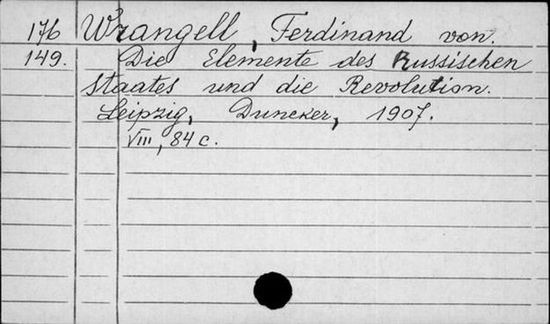 176 Wrangell, Ferdinand von.
149. Die Elemente des Russischen
Staates und die Revolution.
Leipzig, Duncker, 1907.
VIII, 84 c.